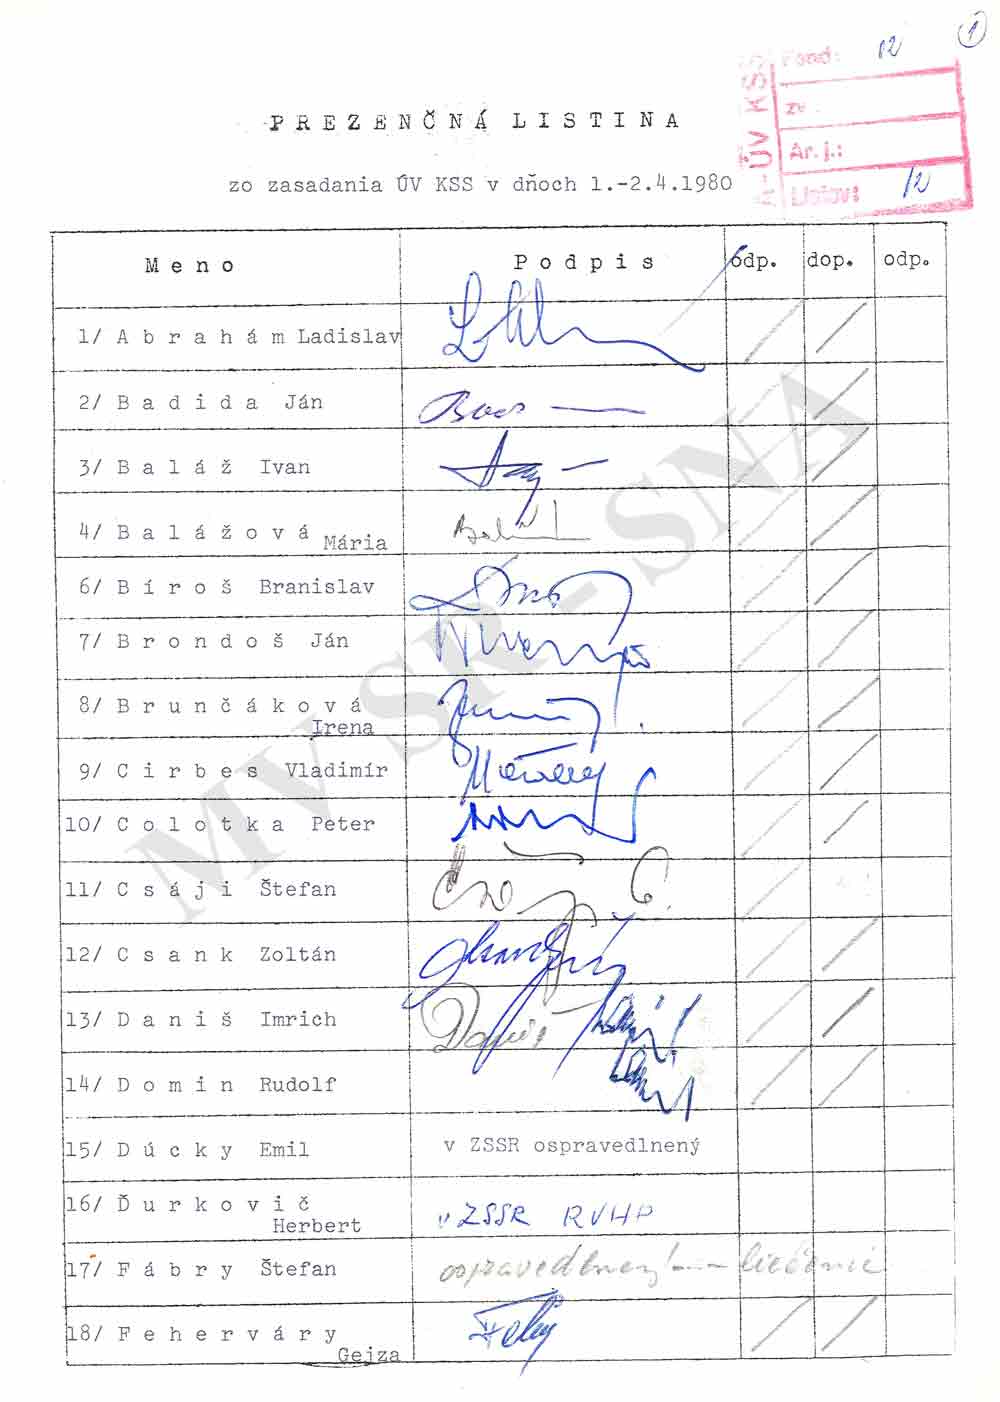 1
Fond: 12
zv.:
Ar. j.:
Listov: 12
A-ÚV KSS
P R E Z E N Č N Á  L I S T I N A
zo zasadania ÚV KSS v dňoch 1.-2.4.1980
M e n o  P o d p i s  odp.  dop.  odp.
1/ A b r a h á m Ladislav
2/ B a d i d a  Ján
3/ B a l á ž  Ivan
4/ B a l á ž o v á
Mária
6/ B í r o š  Branislav
7/ B r o n d o š  Ján
8/ B r u n č á k o v á
Irena
9/ C i r b e s  Vladimír
10/ C o l o t k a  Peter
11/ C s á j i  Štefan
12/ C s a n k  Zoltán
13/ D a n i š  Imrich  Daniš
14/ D o m i n  Rudolf
15/ D ú c k y  Emil  v ZSSR ospravedlnený
16/ Ď u r k o v i č
Herbert  v ZSSR RVHP
17/ F á b r y  Štefan  ospravedlnený - liečenie
18/ F e h e r v á r y
Gejza
MV SR - SNA